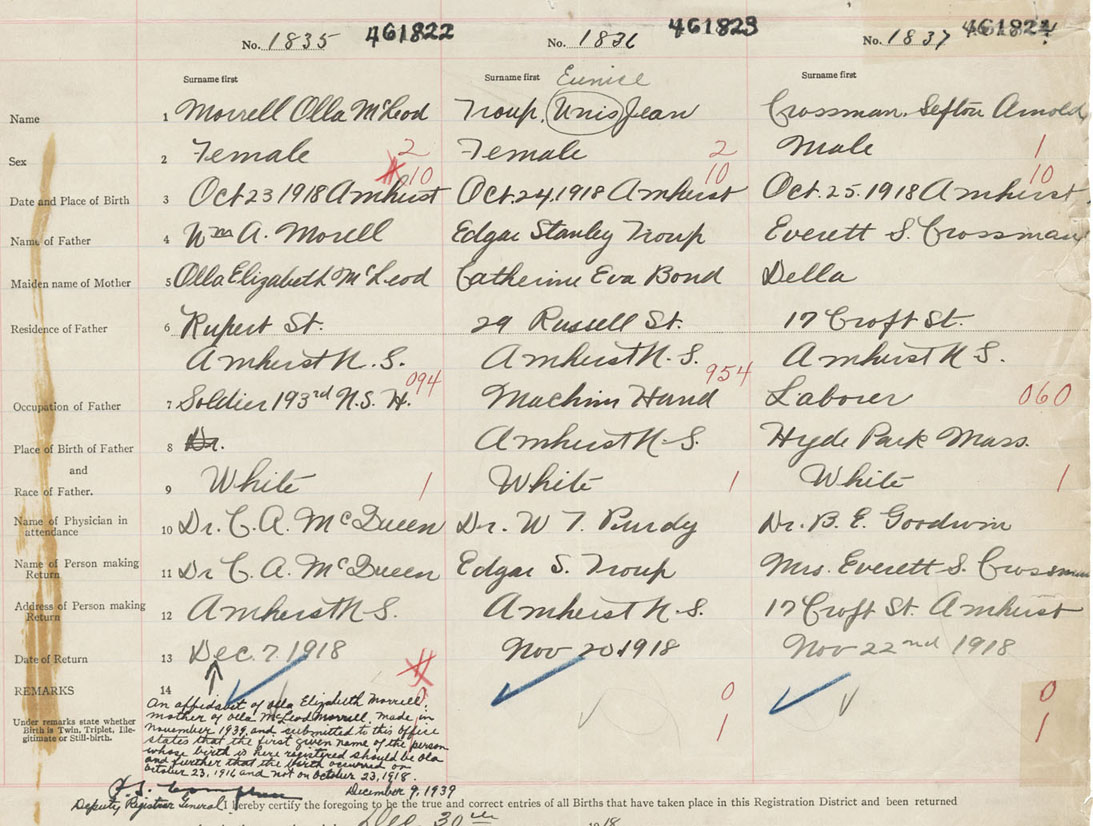 No. 1835 461822 No. 1836 461823 No. 1837 461824
Surname first Surname first Eunice Surname first
Name 1 Morrell Olla McLeod Troup, Unis Jean Crossman, Sefton Arnold
Sex 2 Female 2 Female 2 Male 1
10 10 10
Date and Place of Birth 3 Oct 23 1918 Amherst Oct. 24, 1918 Amherst Oct. 25. 1918 Amherst.
Name of Father 4 Wm A. Morell Edgar Stanley Troup Everett S. Crossman
Maiden name of Mother 5 Olla Elizabeth McLeod Catherine Eva Bond Della
Residence of Father 6 Rupert St. 29 Russell St. 17 Croft St.
Amherst N. S. Amherst N. S. Amherst N S.
094 954
Occupation of Father 7 Soldier 193rd N. S. H. Machine Hand Laborer 060
Place of Birth of Father 8 Amherst N. S. Hyde Park Mass.
and
Race of Father. 9 White 1 White 1 White 1
Name of Physician in
attendance 10 Dr. C. A. McQueen Dr. W T. Purdy Dr. B. E. Goodwin
Name of Person making
Return 11 Dr C. A. McQueen Edgar S. Troup Mrs. Everett S. Crossman
Address of Person making
Return 12 Amherst N S. Amherst N. S. 17 Croft St. Amherst
Date of Return 13 Dec. 7. 1918 Nov 20 1918 Nov 22nd 1918
REMARKS 14 0 0
Under remarks state whether
Birth is Twin, Triplet, Ille-
gitimate or Still-birth. 1 1
An affidavit of Olla Elizabeth Morrell,
mother of Olla McLeod Morrell, made in
November 1939, and submitted to this office
states that the first given name of the person
whose birth is here registered should be Ola
and further that the birth occurred on
October 23, 1916 and not on October 23, 1918.
December 9, 1939
Deputy Registrar General
I hereby certify the foregoing to be the true and correct entries of all Births that have taken place in this Registration District and been returned
Dec. 30th 1918